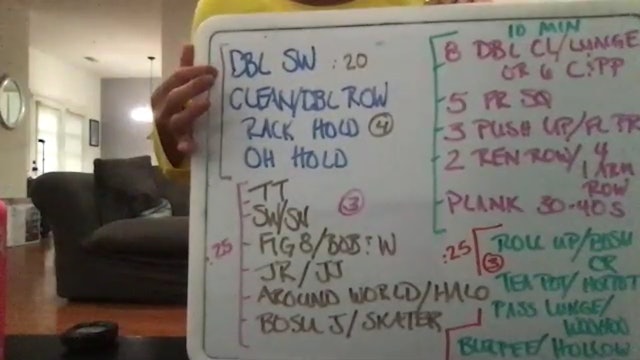 DBL SW :20
CLEAN/DBL ROW
RACK HOLD 4
OH HOLD
TT
SW/SN
3
:25
FIG 8/BOB:W
JR/JJ
AROUND WORLD/HALO
BOSU J/SKATER
10 MIN
8 DBL CL/LUNGE
OR 6 C:PP
5 FR SQ
3 PUSH UP/FL PR
2 REN ROW/4
1 ARM
ROW
PLANK 30-40S
:25
3
ROLL UP/BOSU
OR
TEA POT/HOTPOT
PASS LUNGE/
WOOHOO
BURPEE/HOLLOW